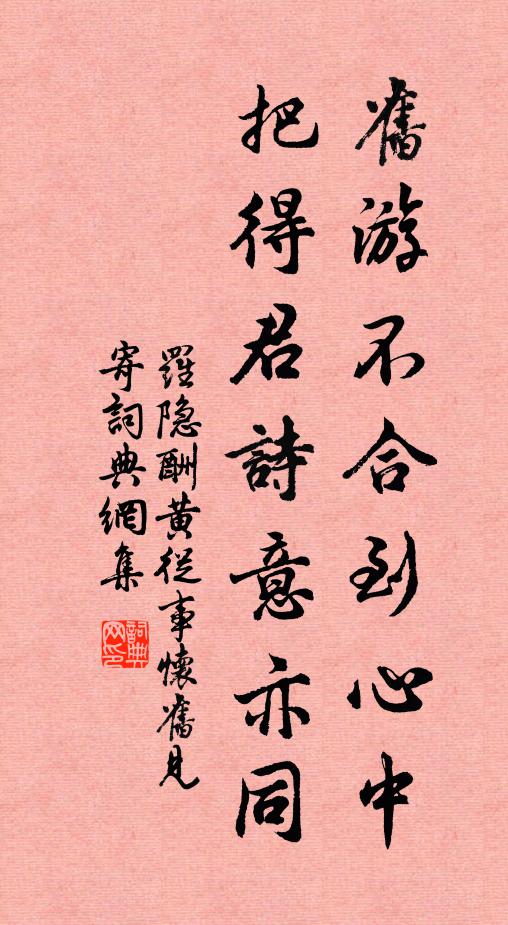 舊游不合到心中
把得君詩意亦同
羅隐酬黄從事懷舊見
寄詞典網集
詞典
网印